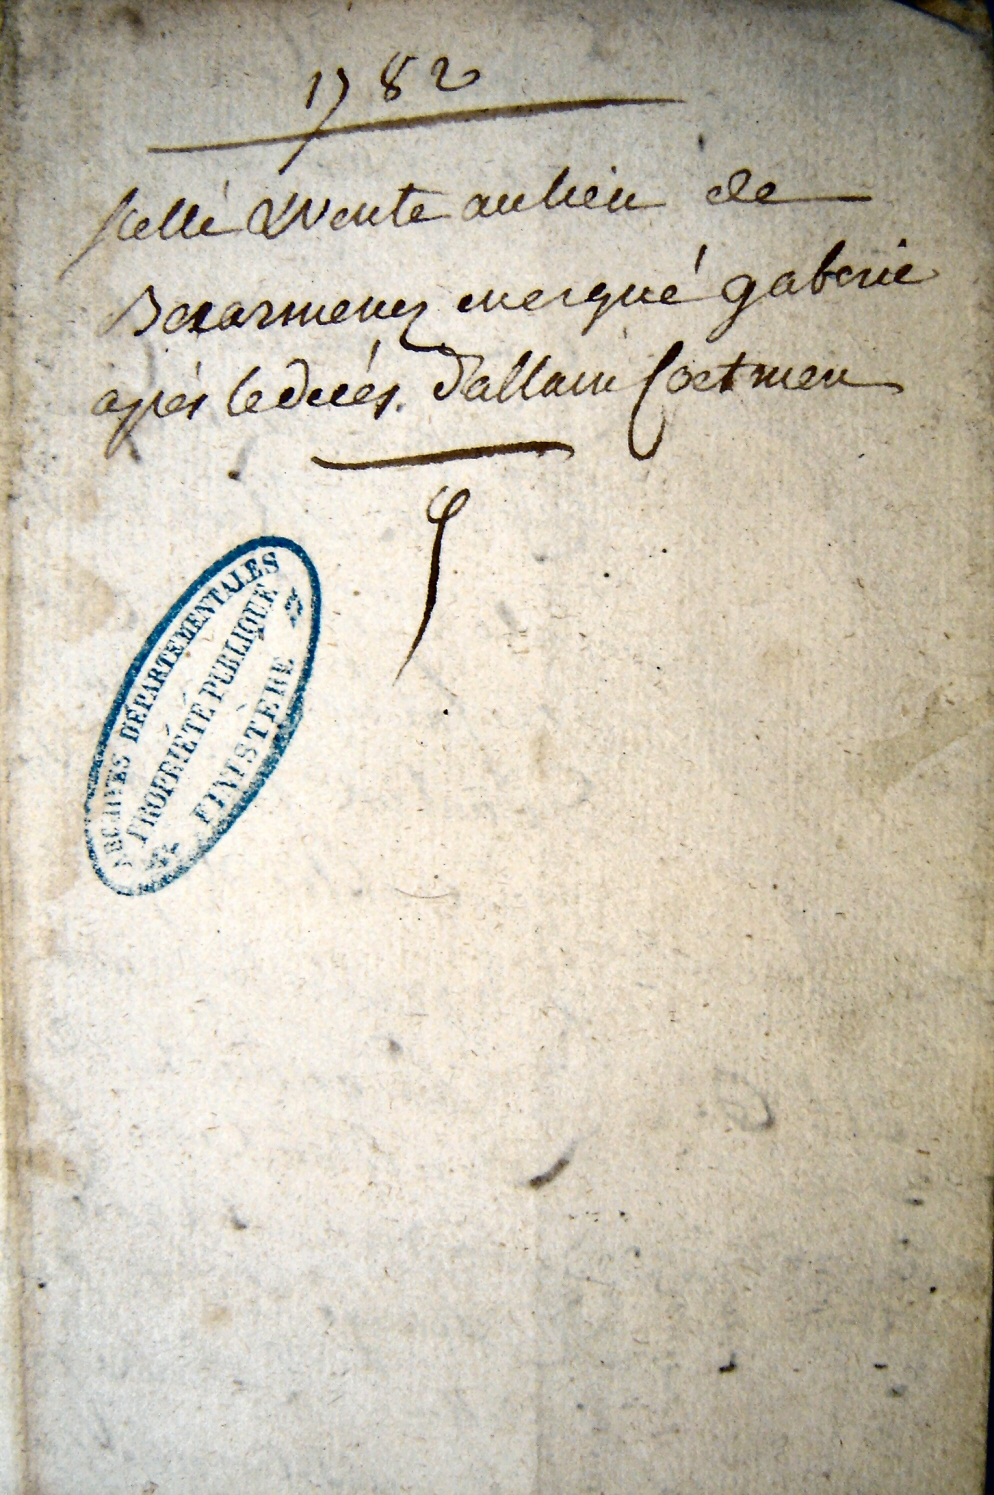 1782
scellé & vente au lieu de
Bezarmenez en ergué gaberic
après le décés d'allain Coetmen
ARCHIVES DÉPARTEMENTALES
PROPRIÉTÉ PUBLIQUE
FINISTÈRE